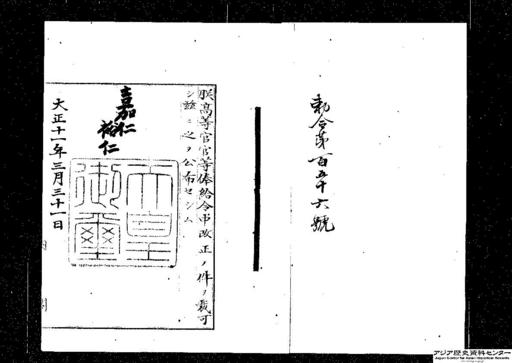 勅令第百五十六號
朕高等官官等俸給令中改正ノ件ヲ裁可
シ茲ニ之ヲ公布セシム
嘉仁
裕仁
天皇御璽
大正十一年三月三十一日
内閣
アジア歴史資料センター
Japan Center for Asian Historical Records